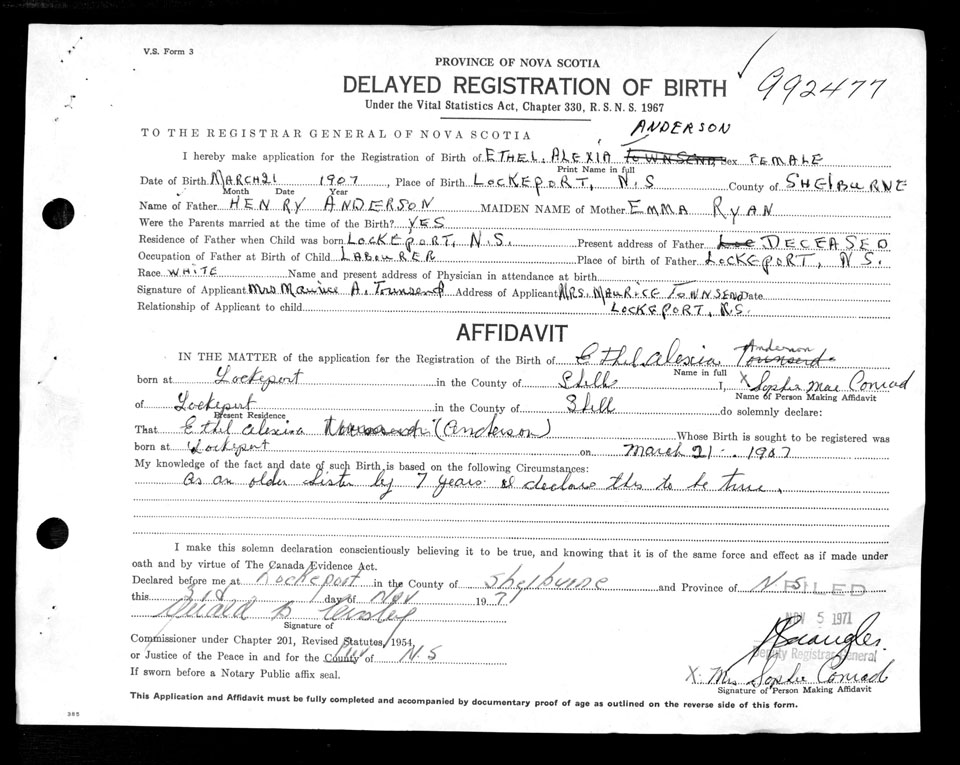 V.S. Form 3
PROVINCE OF NOVA SCOTIA
DELAYED REGISTRATION OF BIRTH
992477
Under the Vital Statistics Act, Chapter 330, R.S.N.S. 1967
ANDERSON
TO THE REGISTRAR GENERAL OF NOVA SCOTIA
I hereby make application for the Registration of Birth of ETHEL ALEXIA TOWNSEND Sex FEMALE
Print Name in full
Date of Birth MARCH 21 1907, Place of Birth LOCKEPORT, N.S County of SHELBURNE
Month Date Year
Name of Father HENRY ANDERSON MAIDEN NAME of Mother EMMA RYAN
Were the Parents married at the time of the Birth? YES
Residence of Father when Child was born LOCKEPORT, N.S. Present address of Father DECEASED
Occupation of Father at Birth of Child LABOURER Place of birth of Father LOCKEPORT, N.S.
Race WHITE Name and present address of Physician in attendance at birth
Signature of Applicant Mrs Maurice A. Townsend Address of Applicant MRS. MAURICE TOWNSEND Date
Relationship of Applicant to child LOCKEPORT, N.S.
AFFIDAVIT
Anderson
IN THE MATTER of the application for the Registration of the Birth of Ethel Alexia Townsend
Name in full
born at Lockeport in the County of Shelb I, X Sophie Mae Conrad
Name of Person Making Affidavit
of Lockeport in the County of Shell do solemnly declare:
Present Residence
That Ethel Alexia (Anderson) Whose Birth is sought to be registered was
born at Lockeport on March 21 1907
My knowledge of the fact and date of such Birth is based on the following Circumstances:
As an older sister by 7 years I declare this to be true.
I make this solemn declaration conscientiously believing it to be true, and knowing that it is of the same force and effect as if made under
oath and by virtue of The Canada Evidence Act.
Declared before me at Lockeport in the County of Shelburne and Province of N.S
FILED
this 3rd day of Nov 1971
NOV 5 1971
Signature of
Commissioner under Chapter 201, Revised Statutes, 1954,
Deputy Registrar General
or Justice of the Peace in and for the County of N.S
X Mrs Sophie Conrad
If sworn before a Notary Public affix seal.
Signature of Person Making Affidavit
This Application and Affidavit must be fully completed and accompanied by documentary proof of age as outlined on the reverse side of this form.
385